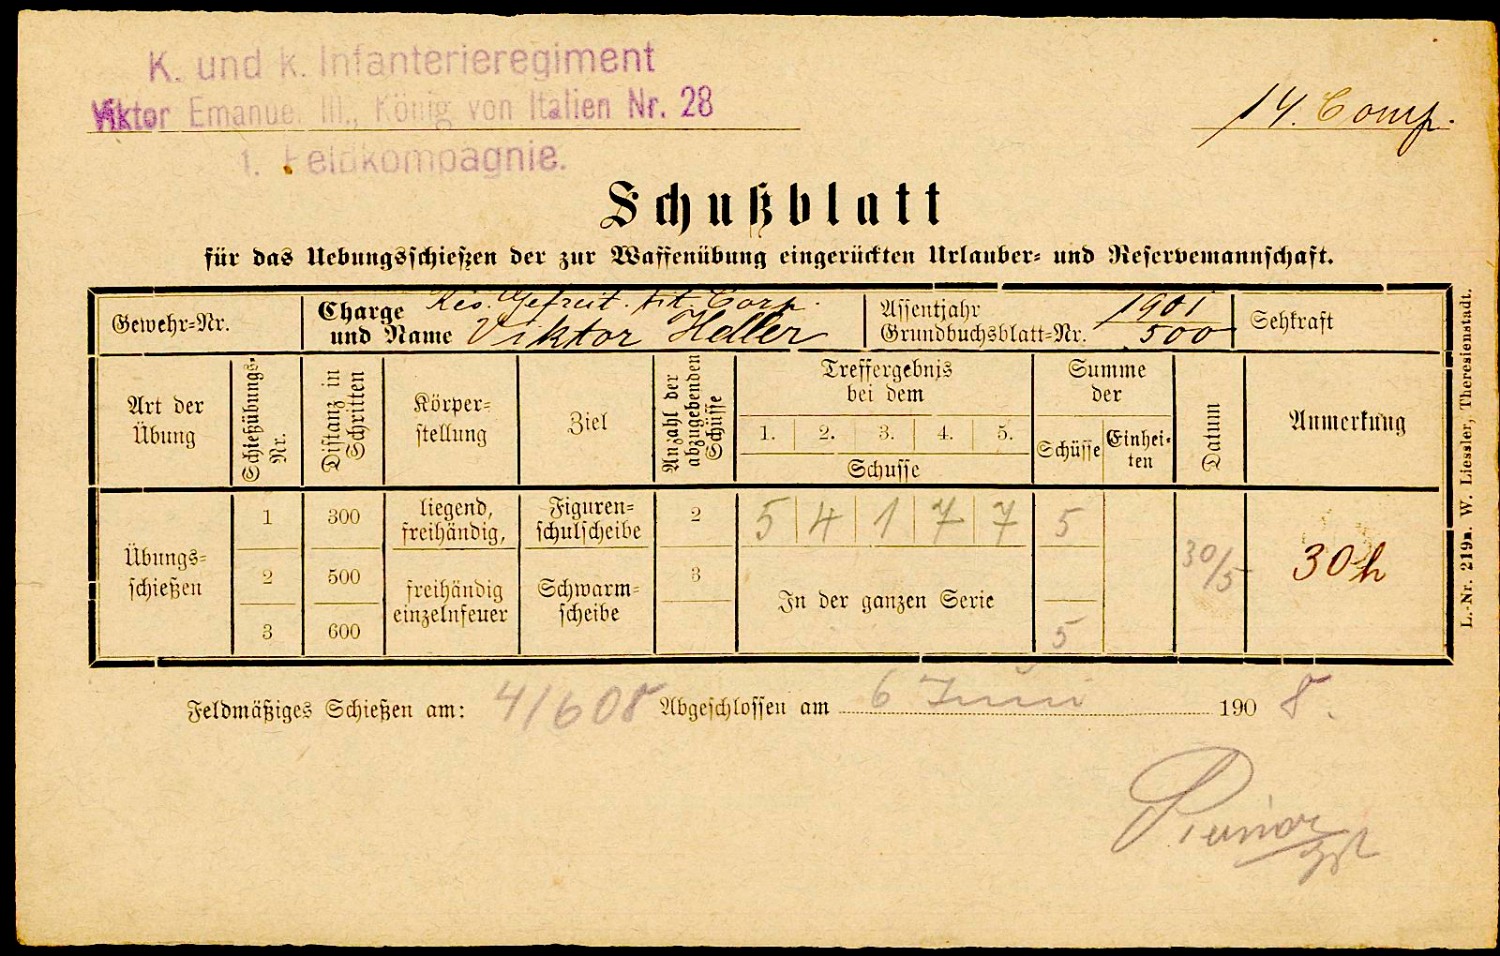 K. und k. Infanterieregiment
Viktor Emanuel III., König von Italien Nr. 28
1. Feldkompagnie.
14. Comp.
Schußblatt
für das Uebungsschießen der zur Waffenübung eingerückten Urlauber- und Reservemannschaft.
Gewehr-Nr.
Charge und Name
Res. Gefreit. tit. Corp.
Viktor Heller
Assentjahr 1901
Grundbuchsblatt-Nr. 500
Sehkraft
Art der Übung
Schießübungs-Nr.
Distanz in Schritten
Körper-stellung
Ziel
Anzahl der abzugebenden Schüsse
Treffergebnis bei dem
1. 2. 3. 4. 5.
Schusse
Summe der
Schüsse
Einhei-ten
Datum
Anmerkung
Übungs-schießen
1 300 liegend, freihändig, Figuren-schulscheibe 2 5 4 1 7 7 5
2 500 freihändig einzelnfeuer Schwarm-scheibe 3 In der ganzen Serie
3 600 5
30/5
30h
Feldmäßiges Schießen am: 4/6 08 Abgeschlossen am 6 Juni 1908.
L.-Nr. 219a. W. Liessler, Theresienstadt.